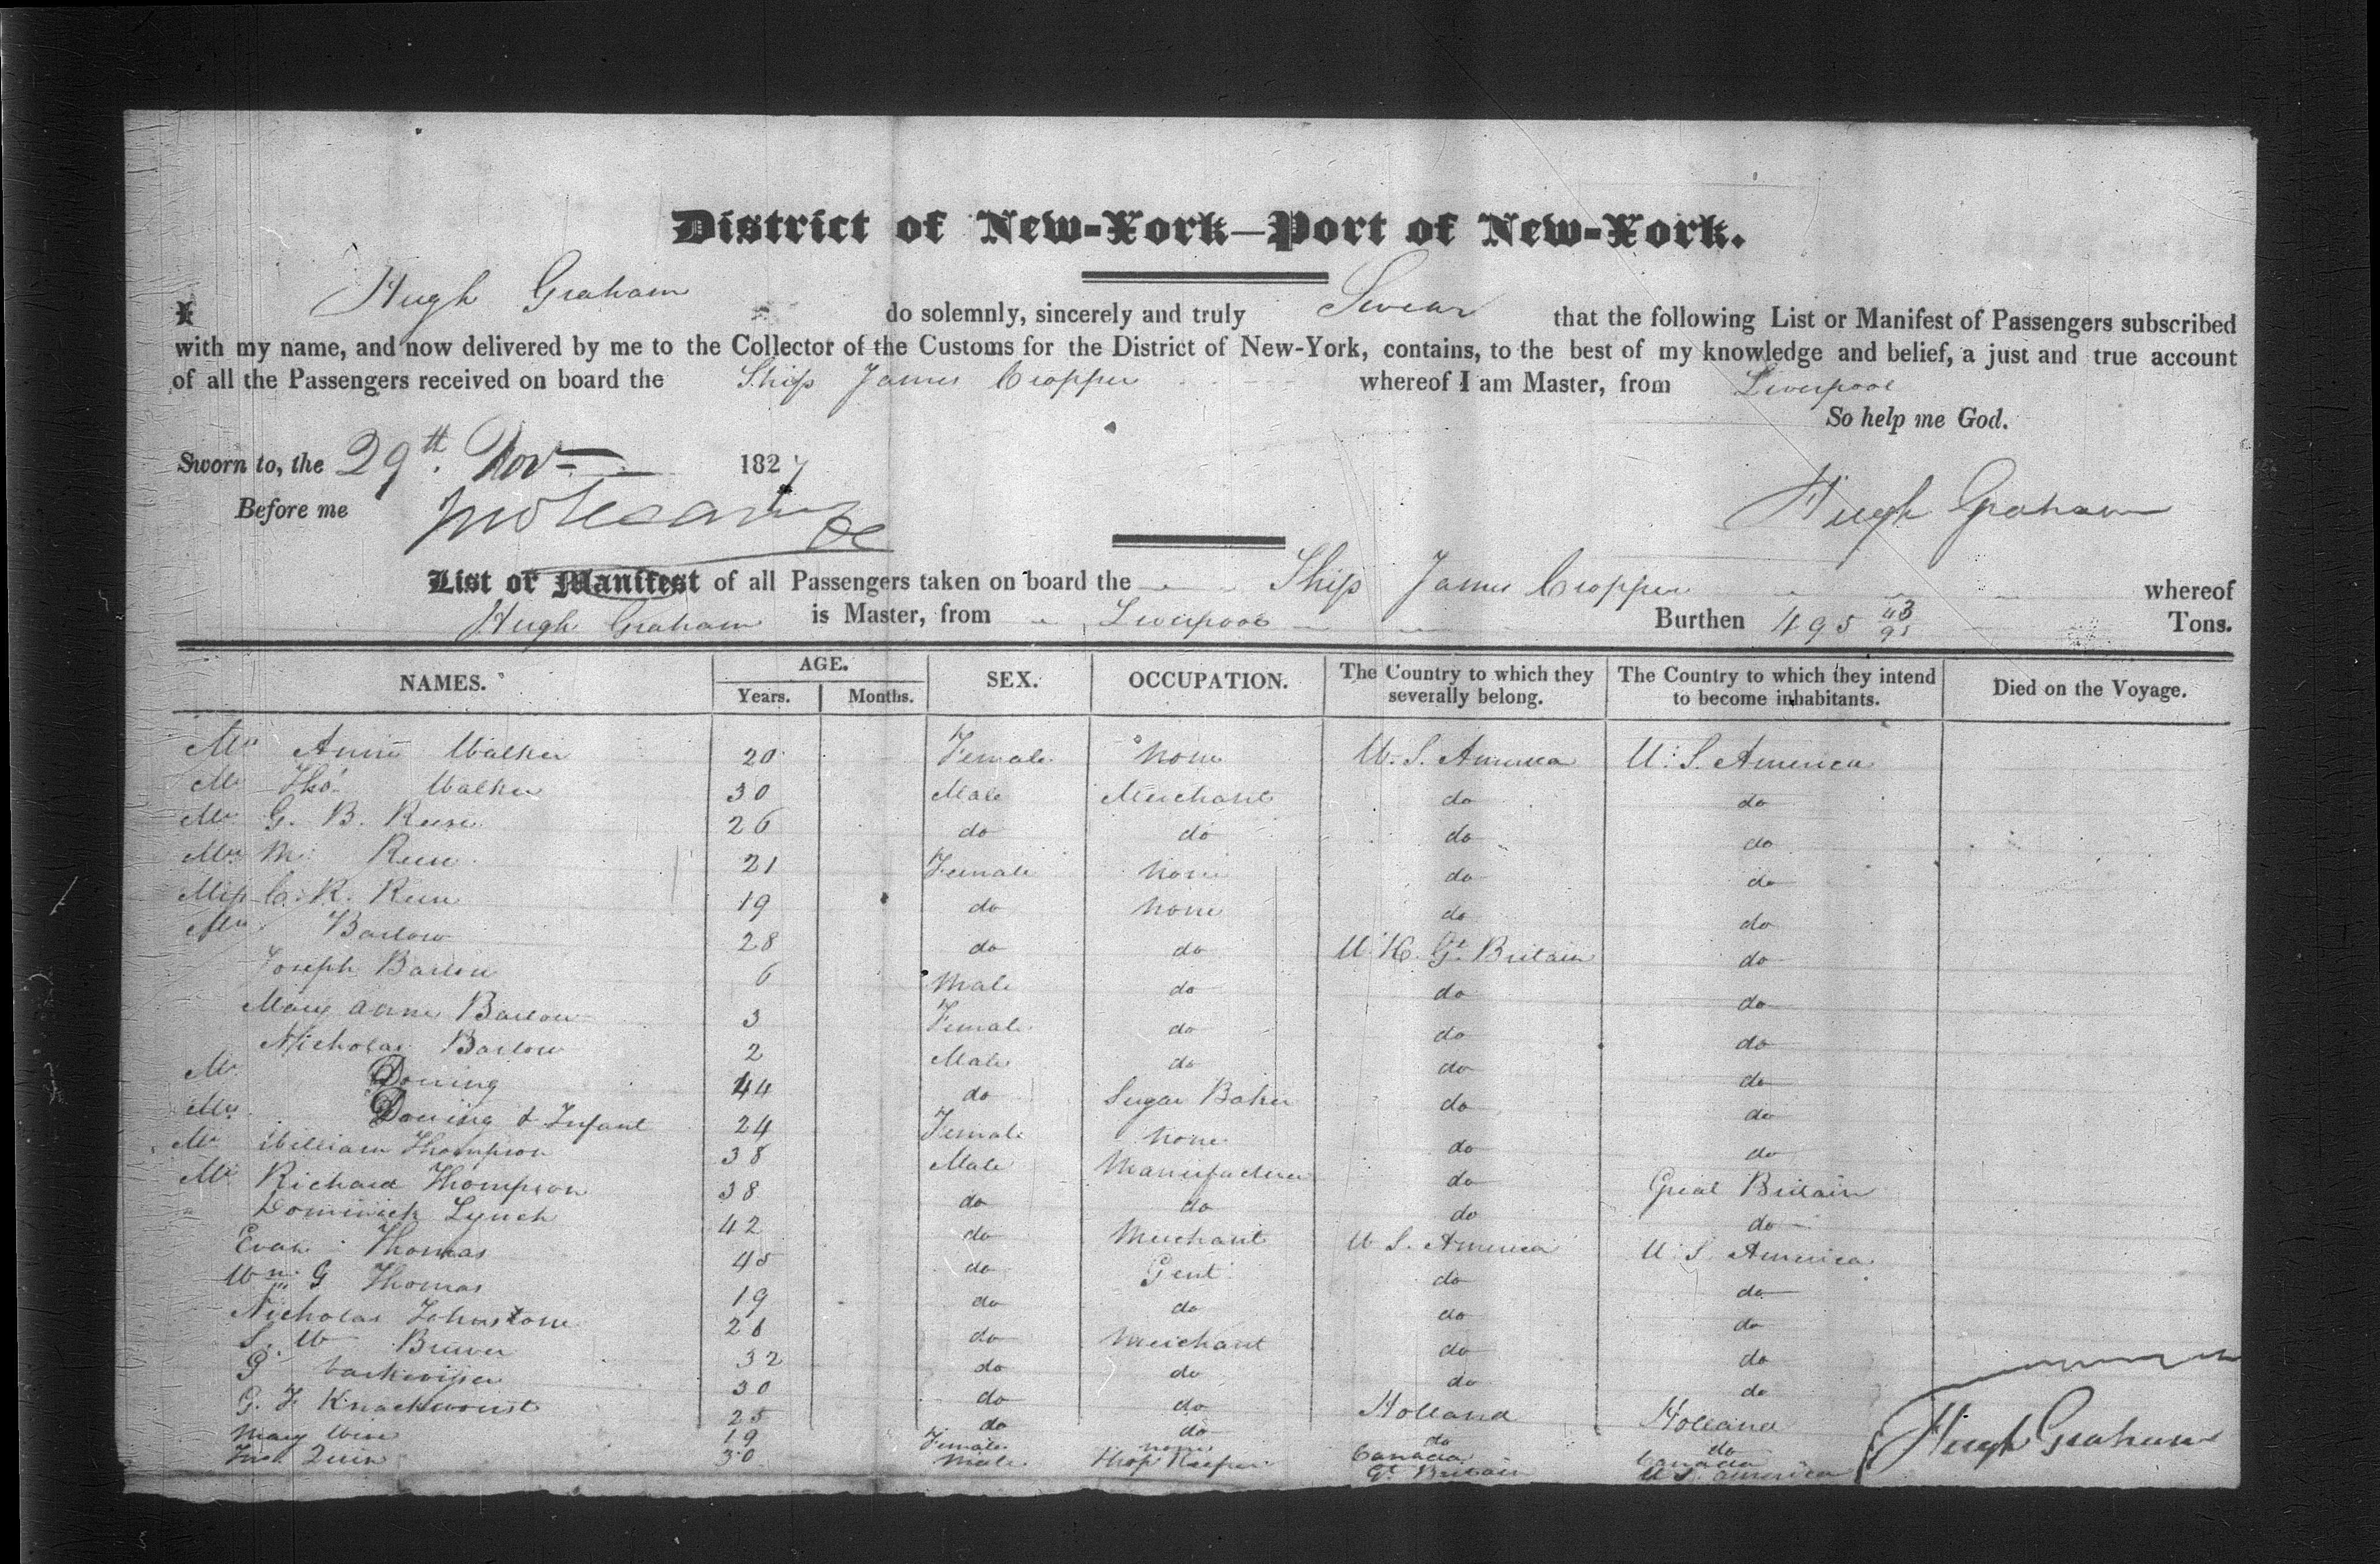 District of New-York—Port of New-York.
I Hugh Graham do solemnly, sincerely and truly Swear that the following List or Manifest of Passengers subscribed
with my name, and now delivered by me to the Collector of the Customs for the District of New-York, contains, to the best of my knowledge and belief, a just and true account
of all the Passengers received on board the Ship James Cropper whereof I am Master, from Liverpool
So help me God.
Sworn to, the 29th Nov 1827
Before me
Hugh Graham
List or Manifest of all Passengers taken on board the Ship James Cropper whereof
Hugh Graham is Master, from Liverpool Burthen 495 43/95 Tons.
NAMES. AGE. Years. Months. SEX. OCCUPATION. The Country to which they severally belong. The Country to which they intend to become inhabitants. Died on the Voyage.
Mrs Anne Walker 20 Female none U. S. America U. S. America
Mr Thos Walker 30 Male Merchant do do
Mr G. B. 26 do do do do
Mrs M. 21 Female none do do
Miss C. R. 19 do none do do
Mrs Barlow 28 do do U. K. Gt Britain do
Joseph Barlow 6 Male do do do
Mary Anne Barlow 3 Female do do do
Nicholas Barlow 2 Male do do do
Mr Doning 44 do Sugar Baker do do
Mrs Doning & Infant 24 Female none do do
Mr William Thompson 38 Male Manufacturer do do
Mr Richard Thompson 38 do do do Great Britain
Dominick Lynch 42 do Merchant do do
Evan Thomas 45 do Gent U S. America U. S. America
Wm G Thomas 19 do do do do
Nicholas Johnstone 26 do Merchant do do
S. W Brewer 32 do do do do
G 30 do do do do
G. F. Knackwourst 25 do do Holland Holland
Mary 19 Female none do do
Canada Canada
Quin 30 Male Shop Keeper Gt Britain U S. America
Hugh Graham